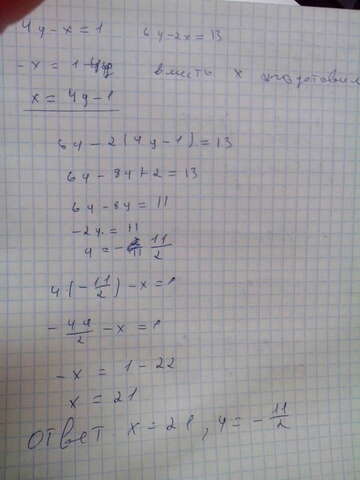 4y-x=1 6y-2x=13
-x=1-4y вместо x подставим
x=4y-1
6y-2(4y-1)=13
6y-8y+2=13
6y-8y=11
-2y=11
y=-11/2
4(-11/2)-x=1
-44/2-x=1
-x=1-22
x=21
Ответ x=21, y=-11/2